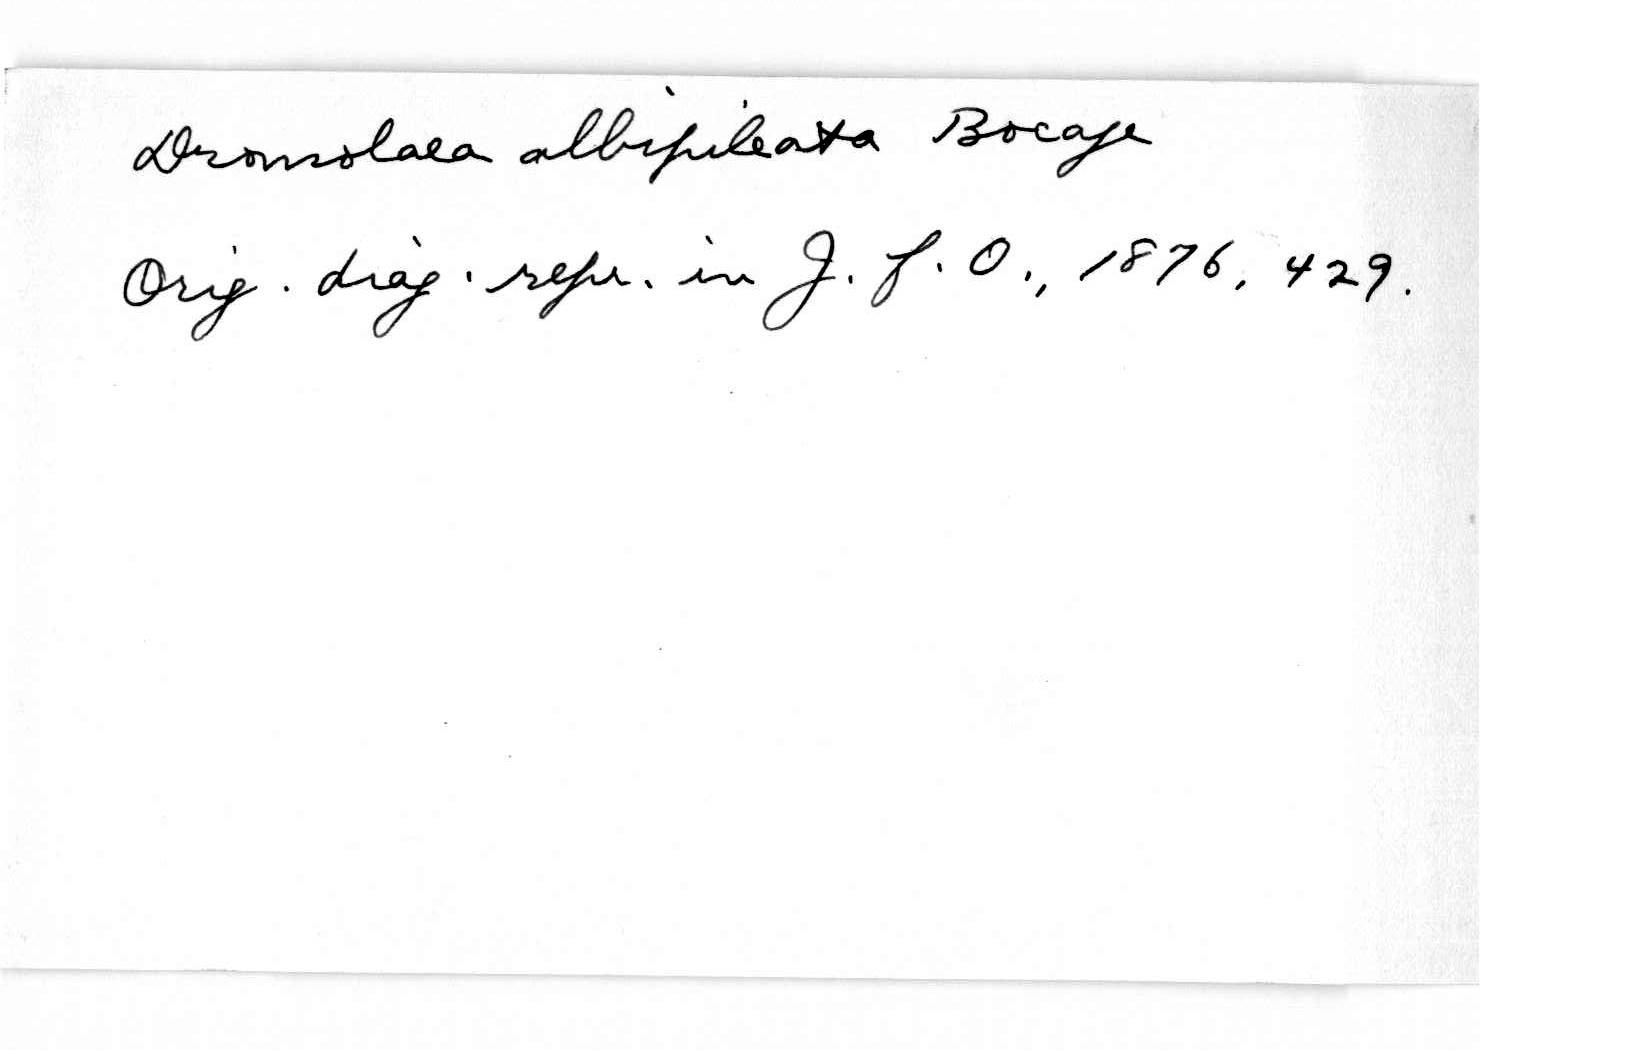 Dromolaea albipileata Bocage
Orig. diag. repr. in J. f. O., 1876, 429.